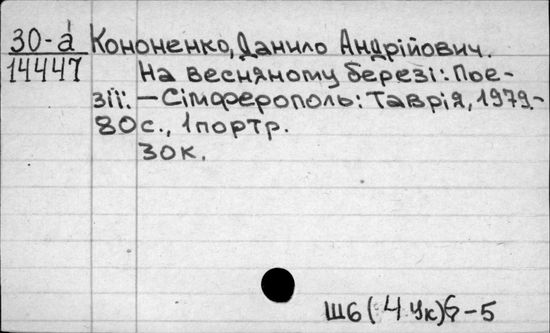 30-а Кононенко, Данило Андрійович.
14447 На весняному березі: Пое-
зії: — Сімферополь: Таврія, 1979.-
80с., 1портр.
30к.
Ш6(4Ук)6-5